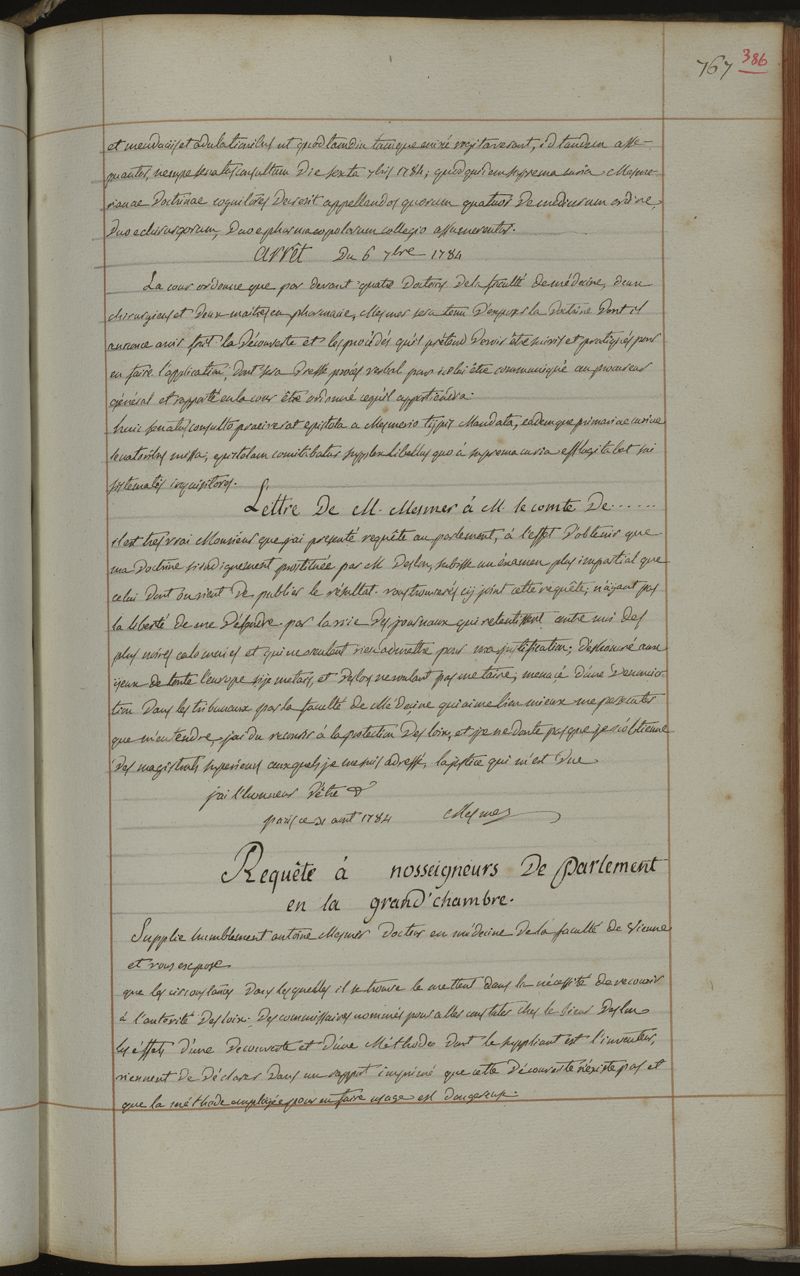 767 386
et mendaciis et adulationibus ut quod tamdiu tamque enixè vegitaverant, id tandem asse-
quantes, nempe senatusconsultum die sexta 7bris 1784; quod quidem suprema curia Mesme-
rianae doctrinae cognitores decrevit appellandos quorum quatuor de medicorum ordine,
duo e chirurgorum, duo e pharmacopolarum collegio assumerentur.
Arrêt Du 6 7bre 1784
La cour ordonne que par devant quatre docteurs de la faculté de médecine, deux
chirurgiens et deux maitres en pharmacie, Mesmer sera tenu d'exposer la doctrine dont il
annonce avoir fait la découverte et les procédés qu'il prétend devoir être suivis et pratiqués pour
en faire l'application, dont sera dressé procès verbal pour icelui être communiqué au procureur
général et rapporté en la cour être ordonné ce qu'il appartiendra.
huic senatusconsulto praeiverat epistola a Mesmerio typis mandata, eademque primariae curiae
senatoribus missa, epistolam comitibatur supplex libellus quo à suprema curia efflagitabat sui
systematis inquisitores.
Lettre De M. Mesmer à M. le comte De ......
il est très vrai Monsieur que j'ai présenté requête au parlement, à l'effet d'obtenir que
ma doctrine si indignement prostituée par M. Deslon, subisse un examen plus impartial que
celui dont on vient de publier le résultat. vous trouverés cy joint cette requête; n'ayant pas
la liberté de me défendre par la voie des journaux qui retentissent contre moi des
plus noires calomnies et qui ne veulent rien admettre pour ma justification; deshonoré aux
yeux de toute l'europe si je me tais, et dès lors ne voulant pas me taire; menacé d'une dénoncia-
tion dans les tribunaux par la faculté de Médecine qui aime bien mieux me persécuter
que m'entendre, j'ai du recourir à la protection des loix, et je ne doute pas que je n'obtienne
des magistrats supérieurs auxquels je me suis adressé, la justice qui m'est due
j'ai l'honneur d'être &
paris ce 31 aout 1784 Mesmer
Requête à nosseigneurs De Parlement
en la grand'chambre.
Supplie humblement antoine Mesmer Docteur en médecine de la faculté de Vienne
et vous expose
que les circonstances dans lesquelles il se trouve le mettent dans la nécessité de recourir
à l'autorité des loix. Des commissaires nommés pour aller constater chez le sieur Deslon
les effets d'une découverte et d'une Méthode dont le suppliant est l'inventeur,
viennent de déclarer dans un rapport imprimé que cette découverte n'existe pas et
que la méthode employée pour en faire usage est dangereuse.